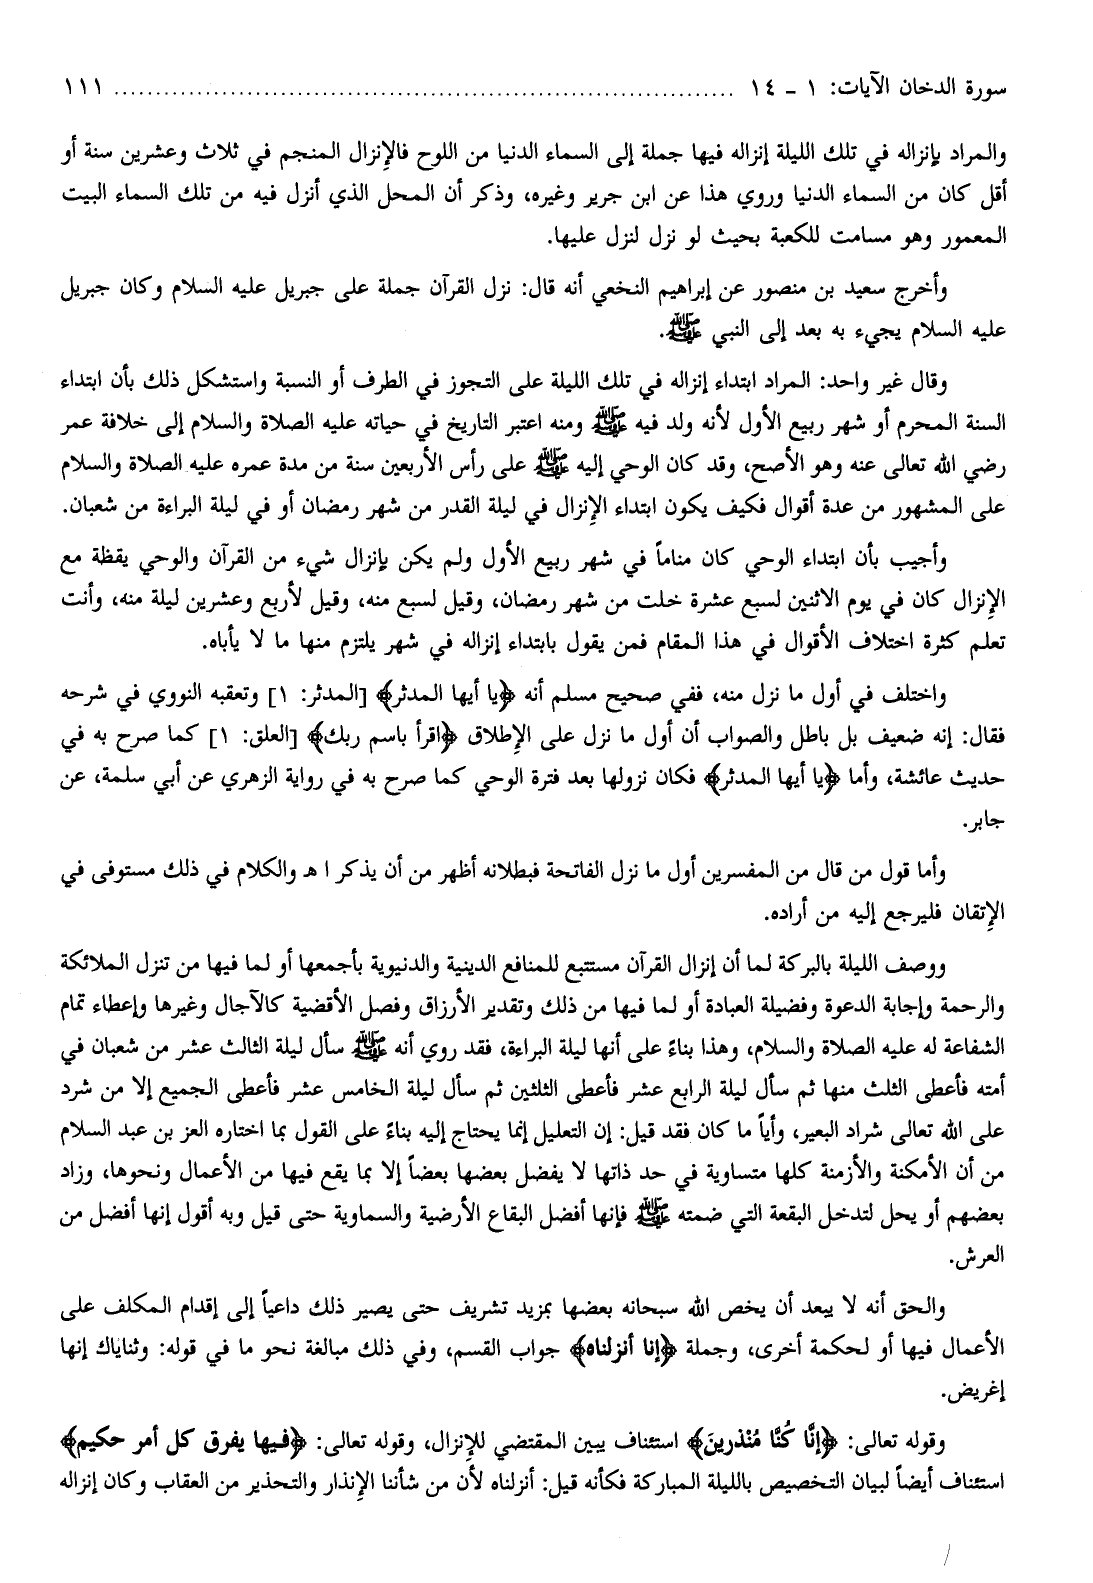 سورة الدخان الآيات: ١ ـ ١٤ ................................................................................ ١١١
والمراد بإنزاله في تلك الليلة إنزاله فيها جملة إلى السماء الدنيا من اللوح فالإنزال المنجم في ثلاث وعشرين سنة أو
أقل كان من السماء الدنيا وروي هذا عن ابن جرير وغيره، وذكر أن المحل الذي أنزل فيه من تلك السماء البيت
المعمور وهو مسامت للكعبة بحيث لو نزل لنزل عليها.
وأخرج سعيد بن منصور عن إبراهيم النخعي أنه قال: نزل القرآن جملة على جبريل عليه السلام وكان جبريل
عليه السلام يجيء به بعد إلى النبي ﷺ.
وقال غير واحد: المراد ابتداء إنزاله في تلك الليلة على التجوز في الطرف أو النسبة واستشكل ذلك بأن ابتداء
السنة المحرم أو شهر ربيع الأول لأنه ولد فيه ﷺ ومنه اعتبر التاريخ في حياته عليه الصلاة والسلام إلى خلافة عمر
رضي الله تعالى عنه وهو الأصح، وقد كان الوحي إليه ﷺ على رأس الأربعين سنة من مدة عمره عليه الصلاة والسلام
على المشهور من عدة أقوال فكيف يكون ابتداء الإنزال في ليلة القدر من شهر رمضان أو في ليلة البراءة من شعبان.
وأجيب بأن ابتداء الوحي كان مناماً في شهر ربيع الأول ولم يكن بإنزال شيء من القرآن والوحي يقظة مع
الإنزال كان في يوم الاثنين لسبع عشرة خلت من شهر رمضان، وقيل لسبع منه، وقيل لأربع وعشرين ليلة منه، وأنت
تعلم كثرة اختلاف الأقوال في هذا المقام فمن يقول بابتداء إنزاله في شهر يلتزم منها ما لا يأباه.
واختلف في أول ما نزل منه، ففي صحيح مسلم أنه ﴿يا أيها المدثر﴾ [المدثر: ١] وتعقبه النووي في شرحه
فقال: إنه ضعيف بل باطل والصواب أن أول ما نزل على الإطلاق ﴿اقرأ باسم ربك﴾ [العلق: ١] كما صرح به في
حديث عائشة، وأما ﴿يا أيها المدثر﴾ فكان نزولها بعد فترة الوحي كما صرح به في رواية الزهري عن أبي سلمة، عن
جابر.
وأما قول من قال من المفسرين أول ما نزل الفاتحة فبطلانه أظهر من أن يذكر ا هـ والكلام في ذلك مستوفى في
الإتقان فليرجع إليه من أراده.
ووصف الليلة بالبركة لما أن إنزال القرآن مستتبع للمنافع الدينية والدنيوية بأجمعها أو لما فيها من تنزل الملائكة
والرحمة وإجابة الدعوة وفضيلة العبادة أو لما فيها من ذلك وتقدير الأرزاق وفصل الأقضية كالآجال وغيرها وإعطاء تمام
الشفاعة له عليه الصلاة والسلام، وهذا بناءً على أنها ليلة البراءة، فقد روي أنه ﷺ سأل ليلة الثالث عشر من شعبان في
أمته فأعطى الثلث منها ثم سأل ليلة الرابع عشر فأعطى الثلثين ثم سأل ليلة الخامس عشر فأعطى الجميع إلا من شرد
على الله تعالى شراد البعير، وأياً ما كان فقد قيل: إن التعليل إنما يحتاج إليه بناءً على القول بما اختاره العز بن عبد السلام
من أن الأمكنة والأزمنة كلها متساوية في حد ذاتها لا يفضل بعضها بعضاً إلا بما يقع فيها من الأعمال ونحوها، وزاد
بعضهم أو يحل لتدخل البقعة التي ضمته ﷺ فإنها أفضل البقاع الأرضية والسماوية حتى قيل وبه أقول إنها أفضل من
العرش.
والحق أنه لا يبعد أن يخص الله سبحانه بعضها بمزيد تشريف حتى يصير ذلك داعياً إلى إقدام المكلف على
الأعمال فيها أو لحكمة أخرى، وجملة ﴿إنا أنزلناه﴾ جواب القسم، وفي ذلك مبالغة نحو ما في قوله: وثناياك إنها
إغريض.
وقوله تعالى: ﴿إنَّا كُنَّا مُنْذرينَ﴾ استئناف يبين المقتضي للإنزال، وقوله تعالى: ﴿فيها يفرق كل أمر حكيم﴾
استئناف أيضاً لبيان التخصيص بالليلة المباركة فكأنه قيل: أنزلناه لأن من شأننا الإنذار والتحذير من العقاب وكان إنزاله